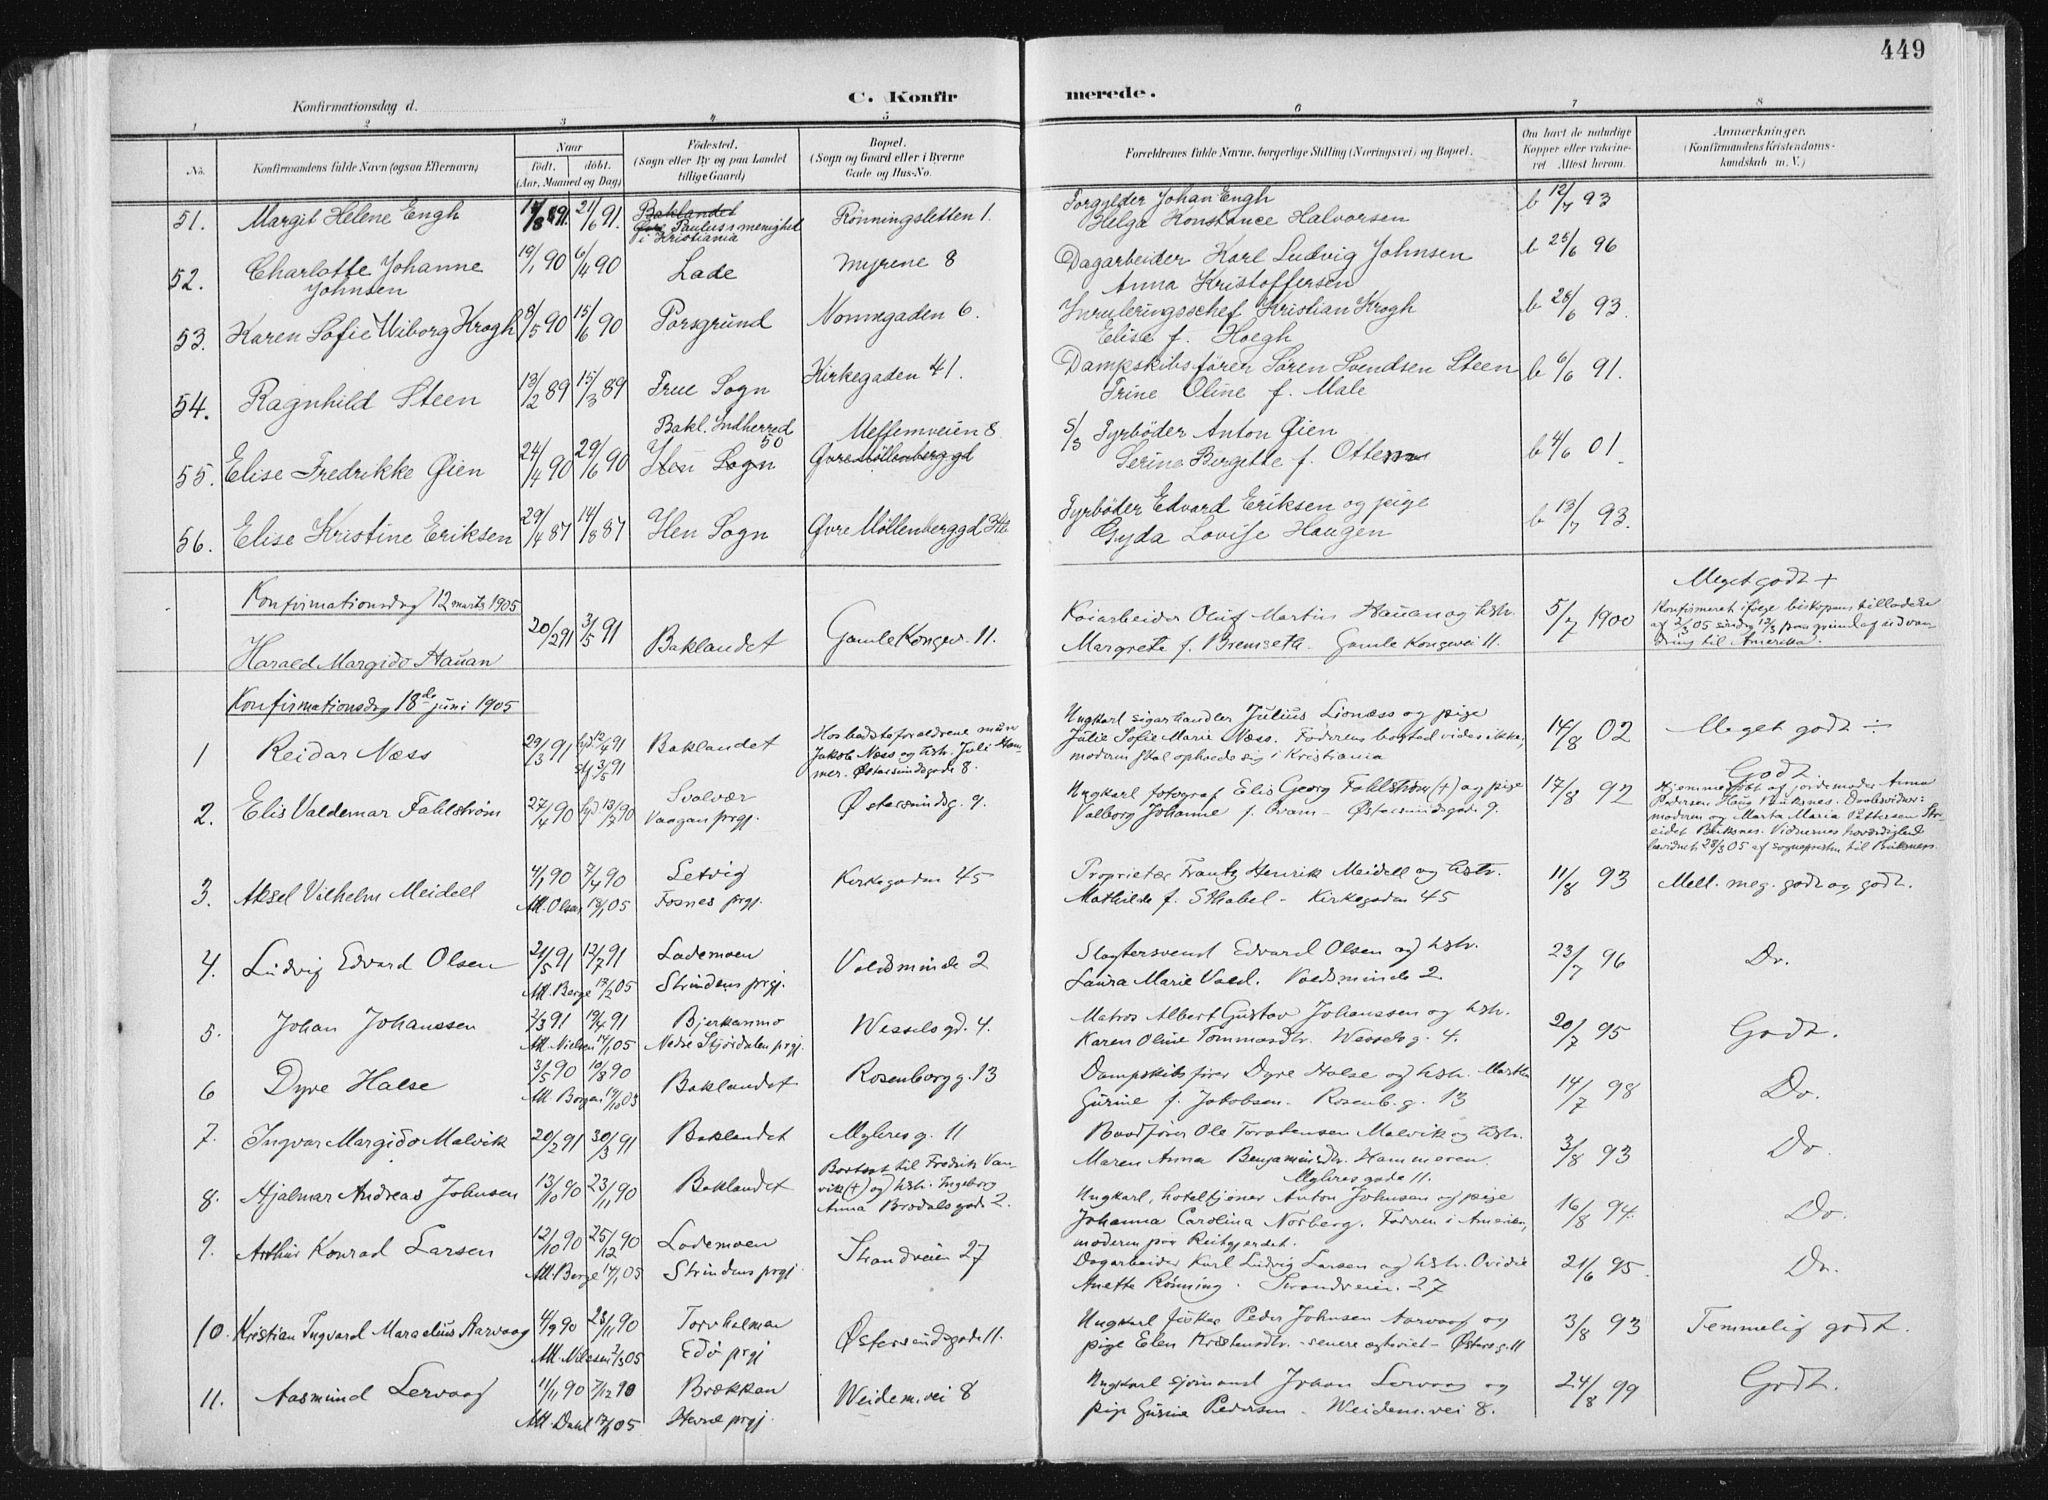 449
Konfirmationsdag d.
C. Konfir merede.
1 2 3 4 5 6 7 8
No. Konfirmandens fulde Navn (ogsaa Efternavn)
Naar født. døbt. (Aar, Maaned og Dag)
Fødested. (Sogn eller By og paa Landet tillige Gaard)
Bopæl. (Sogn og Gaard eller i Byerne Gade og Hus-No.
Forældrenes fulde Navne, borgerlige Stilling (Næringsvei) og Bopæl.
Om havt de naturlige Kopper eller vaccineret. Attest herom.
Anmærkninger. (Konfirmandens Kristendomskundskab m. V.)
51. Margit Helene Engh 21/6 91. Baklandet Rönningsletten 1. Forgylder Johan Engh b 12/7 93
Paulus menighed i Kristiania Helga Konstance Halvorsen
52. Charlotte Johanne Johnsen 19/1 90 6/4 90 Lade Myrene 8 Dagarbeider Karl Ludvig Johnsen b 25/6 96
Anna Kristoffersen
53. Karen Sofie Wiborg Krogh 8/5 90 15/6 90 Porsgrund Nonnegaden 6. Inruleringschef Kristian Krogh b 28/6 93.
Elise f. Hoegh
54. Ragnhild Steen 13/2 89 15/3 89 Frue Sogn Kirkegaden 41. Dampskibsfører Sören Svendsen Steen b 6/6 91.
Trine Oline f. Male
Bakl. Indherred 50 Mellemveien 8
55. Elise Fredrikke Øien 24/4 90 29/6 90 Ilen Sogn Øvre Möllenberg gd 5/3 Fyrböder Anton Øien b 4/6 01.
Serine Birgitte f. Ottem
56. Elise Kristine Eriksen 29/4 87 14/8 87 Ilen Sogn Øvre Möllenberggd Fyrböder Edvard Eriksen og pige b 13/7 93.
Gyda Lovise Haugen
Konfirmationsdag 12 marts 1905
Harald Margido Hauan 20/2 91 3/5 91 Baklandet Gamle Kongev. 11. Kaiarbeider Oluf Martin Hauan og hstr. 5/7 1900 Meget godt +
Margrete f. Bremseth. Gamle Kongevei 11. Konfirmeret ifølge biskopens tilladelse af 2/3 05 søndag 12/3 paa grund af udvandring til Amerika.
Konfirmationsdag 18de juni 1905
1 Reidar Næss 29/3 91 12/4 91 3/5 91 Baklandet Hos bedsteforældrene mur Jakob Næss og hstr. Juli Hammer. Østersundsgade 8. Ungkarl sigarhandler Julius Lionæss og pige 14/8 02 Meget godt ÷
Julie Sofie Marie Næss. Faderens bosted vides ikke, moderen skal opholde sig i Kristiania
2. Elis Valdemar Fahlstrøm 27/4 90 13/7 90 Svolvær Vaagan prgj. Østersundsg. 9. Ungkarl fotograf Elis Georg Fahlstrøm (+) og pige 17/8 92 Godt
Valborg Johanne f. Ovam - Østersundsgade 9. Hjemmedøbt af jordemoder Anna Pedersen Haug Buksnes. Daabsvidner: moderen og Marta Maria Pettersen Buksnes. 28/3 05 af sognepresten til Buksnes.
3. Aksel Vilhelm Meidell 4/1 90 7/4 90 Setvig Fosnes prgj. Kirkegaden 45 Proprietær Frantz Henrik Meidell og hstr. 11/8 93 Mell. meg. godt og godt.
Att. Olsen 18/1 05 Mathilde f. Sthabel - Kirkegaden 45
4. Ludvig Edvard Olsen 21/5 91 12/7 91 Lademoen Voldsminde 2 Slagtersvend Edvard Olsen og hstr. 23/7 96 Do.
Att. Berge 17/2 05 Strindens prgj. Laura Marie Vold. Voldsminde 2.
5. Johan Johanssen 2/3 91 19/4 91 Bjerkanmo Wesselsgd. 4. Matros Albert Gustav Johanssen og hstr. 20/7 95 Godt.
Att. Nielsen 17/1 05 Nedre Stjørdalen prgj. Karen Oline Tommasdtr. Wesselsg. 4.
6 Dyre Halse 3/5 90 10/8 90 Baklandet Rosenborgg. 13 Dampskibsfører Dyre Halse og hstr. Martha 14/7 98 Do.
Att. Borgen 19/10 03 Gurine f. Jakobsen. Rosenb.g. 13
7. Ingvar Margido Malvik 20/2 91 30/3 91 Baklandet Mylresg. 11 Baadfører Ole Torstensen Malvik og hstr. 3/8 93 Do
Maren Anna Benjaminsdtr. Hammeren. Mylresgade 11.
8. Hjalmar Andreas Johnsen 13/10 90 23/11 90 Baklandet Bortsat til Fredrik Vanvik (+) og hstr. Ingeborg Anna Brodalsgade 2. Ungkarl, hoteltjener Anton Johnsen og pige 16/8 94. Do.
Johanna Carolina Norberg. Faderen i Amerika, moderen paa Reitgjerdet.
9. Arthur Konrad Larsen 12/10 90 25/12 90 Lademoen Strandveien 27 Dagarbeider Karl Ludvig Larsen og hstr. Ovidie 21/6 95. Do.
Att. Berge 14/1 05 Strindens prgj. Anette Rønning. Strandveien 27
10. Kristian Ingvard Marselius Aarvaag 4/9 90 23/11 90 Torvholmen Østersundsgade 11. Ungkarl fisker Peder Johnsen Aarvaag og 3/8 93 Temmelig godt.
Att. Nilssen 2/3 05 Edø prgj pige Elen - senere egteviet - Østersg. 11
11. Aasmund Lervaag 11/11 90 7/12 90 Brækkan Weidem. vei 8 Ungkarl sjømand Johan Lervaag og 24/8 99 Godt.
Att. Dahl 17/1 05 Hevne prgj. pige Gurine Pedersen. Weidem. vei 8.